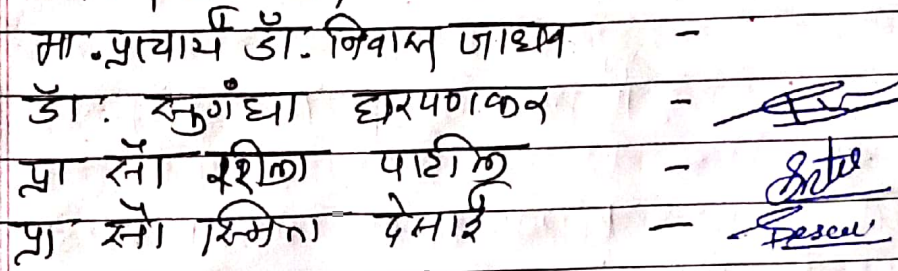 मा. प्राचार्य डॉ. निवास जाधव -
डॉ. सुगंधा घरपणकर -
प्रा सौ पाटील -
प्रा सौ स्मिता देसाई - Desai